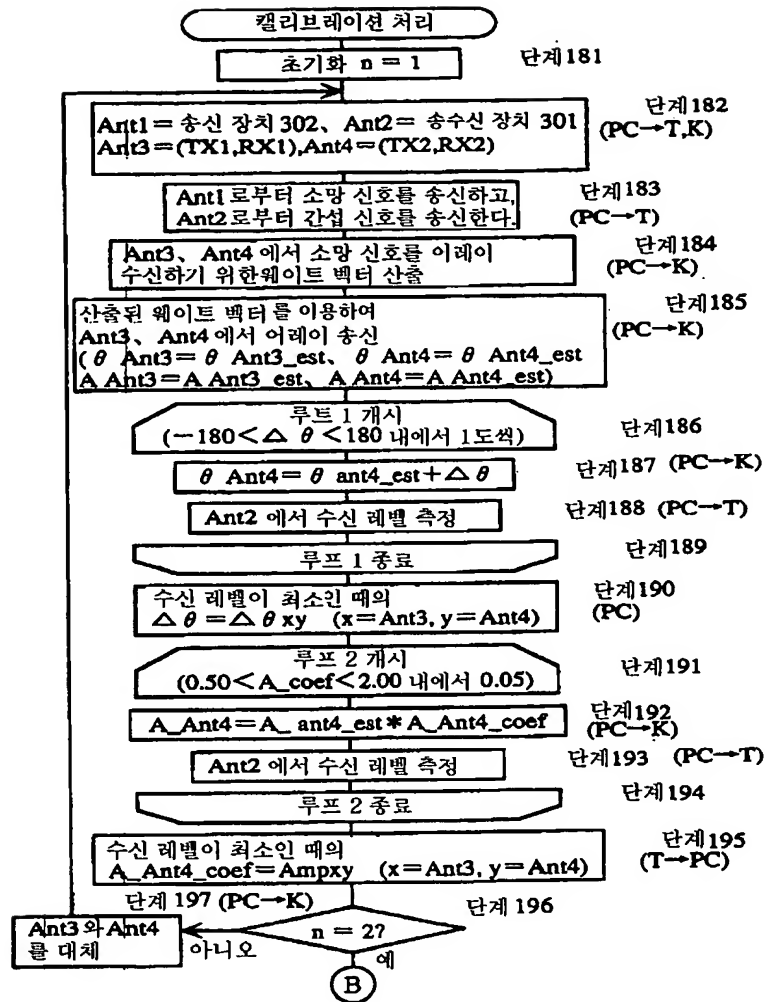 캘리브레이션 처리
초기화 n = 1
단계181
Ant1= 송신 장치 302、Ant2= 송수신 장치 301
Ant3=(TX1,RX1),Ant4=(TX2,RX2)
단계182
(PC→T,K)
Ant1로부터 소망 신호를 송신하고,
Ant2로부터 간섭 신호를 송신한다.
단계183
(PC→T)
Ant3、Ant4 에서 소망 신호를 어레이
수신하기 위한웨이트 벡터 산출
단계184
(PC→K)
산출된 웨이트 벡터를 이용하여
Ant3、Ant4 에서 어레이 송신
( θ Ant3= θ Ant3_est、θ Ant4= θ Ant4_est
A Ant3=A Ant3_est、A Ant4=A Ant4_est)
단계185
(PC→K)
루트 1 개시
(−180<△ θ <180 내에서 1도씩)
단계186
θ Ant4= θ ant4_est+△ θ
단계187 (PC→K)
Ant2 에서 수신 레벨 측정
단계188 (PC→T)
루프 1 종료
단계189
수신 레벨이 최소인 때의
△ θ =△ θ xy (x=Ant3, y=Ant4)
단계190
(PC)
루프 2 개시
(0.50<A_coef<2.00 내에서 0.05)
단계191
A_Ant4=A_ ant4_est* A_Ant4_coef
단계192
(PC→K)
Ant2 에서 수신 레벨 측정
단계193 (PC→T)
루프 2 종료
단계194
수신 레벨이 최소인 때의
A_Ant4_coef=Ampxy (x=Ant3, y=Ant4)
단계195
(T→PC)
단계197 (PC→K)
단계196
Ant3와Ant4
를 대체
아니오
n = 2?
예
B